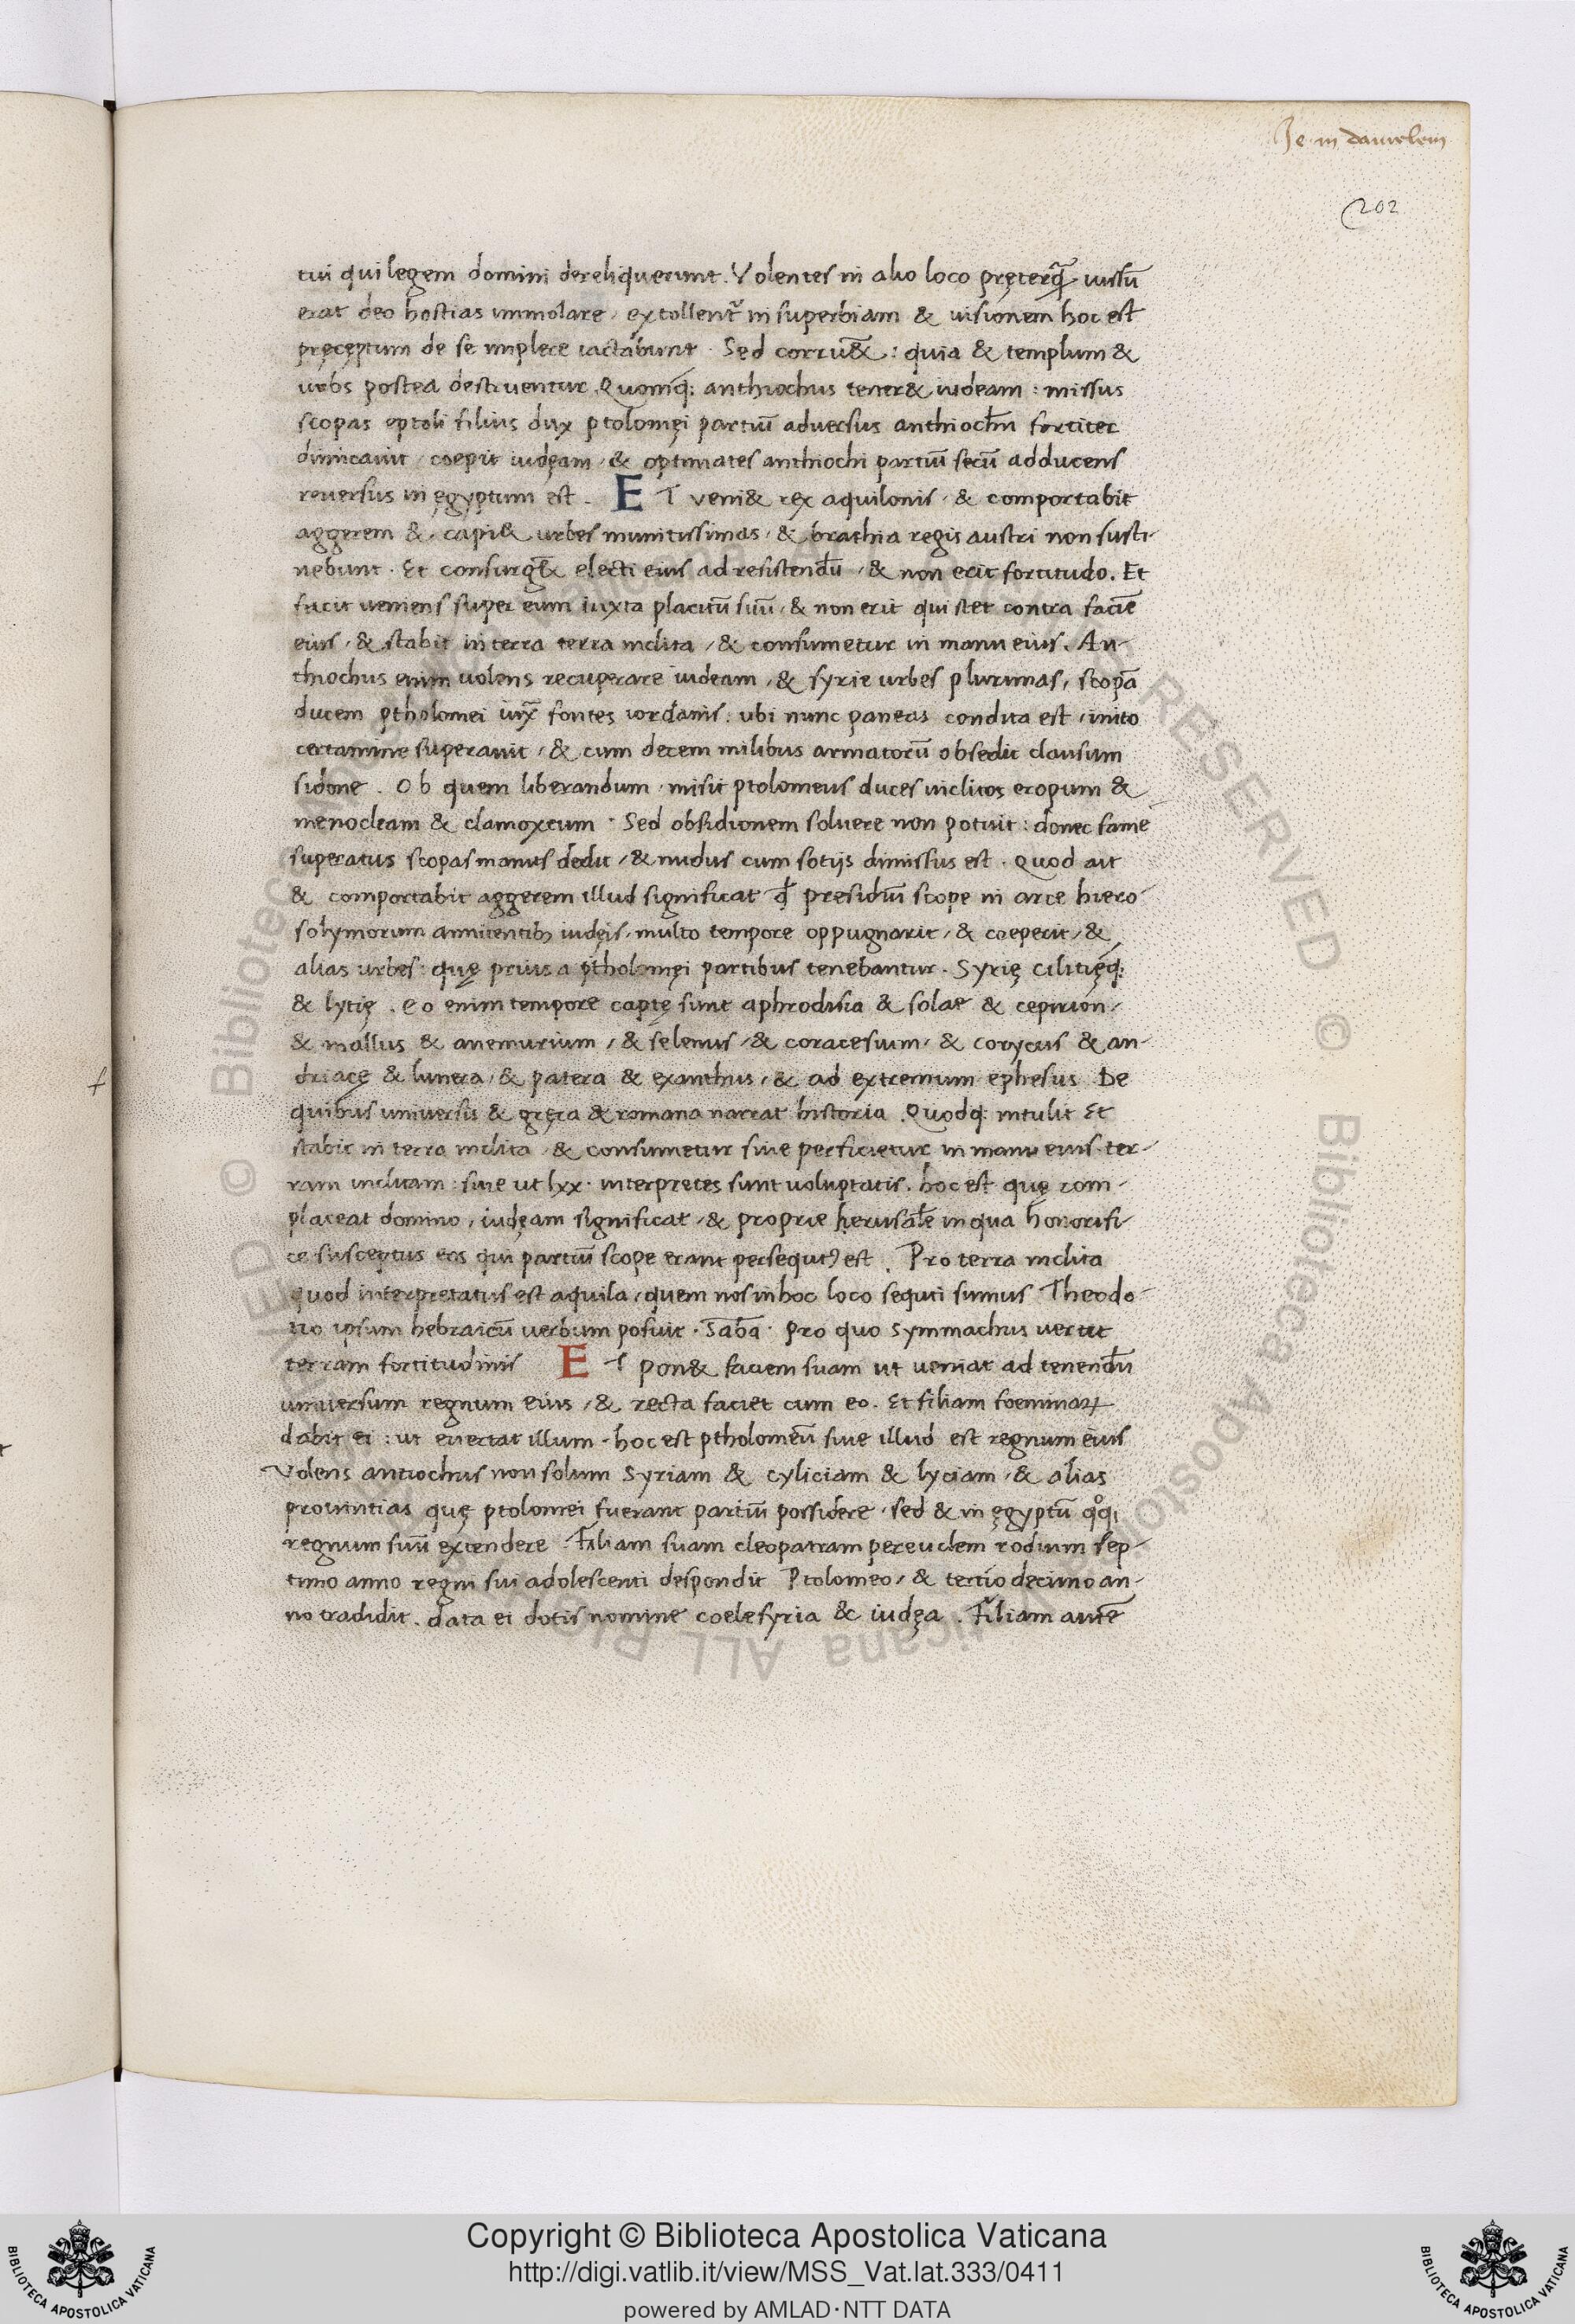 Je. in danielem
202
tui qui legem domini dereliquerunt. Volentes in alio loco pręterq̃ uisũ
erat deo hostias immolare, extollent᷑ in superbiam & uisionem hoc est
pręceptum de se implere iactabunt. Sed corru&: quia & templum &
urbs postea destruentur. Quomq: anthiochus tener& iudeam: missus
scopas eptoli filius dux ptolomęi partiũ aduersus anthiochũ fortiter
dimicauit, coepit iudęam, & optimates anthiochi partiũ secũ adducens
reuersus in ęgyptum est. ET veni& rex aquilonis, & comportabit
aggerem & capi& urbes munitissimas, & brachia regis austri non susti-
nebunt. Et consurg̃& electi eius ad resistendũ, & non erit fortitudo. Et
faciet ueniens super eum iuxta placitũ suũ, & non erit qui stet contra faciẽ
eius, & stabit in terra terra inclita, & consumetur in manu eius. An-
thiochus enim uolens recuperare iudeam, & syrie urbes plurimas, scopã
ducem ptholomei iux̃ fontes iordanis, ubi nunc paneas condita est, inito
certamine superauit, & cum decem milibus armatorũ obsedit clausum
sidone. Ob quem liberandum, misit ptolomeus duces inclitos eropum &
menocleam & clamoxeum. Sed obsidionem soluere non potuit: donec fame
superatus scopas manus dedit, & nudus cum sotijs dimissus est. Quod ait
& comportabit aggerem illud significat qđ presidiũ scope in arce hiero-
solymorum annitentibȝ iudęis, multo tempore oppugnarit, & coeperit, &
alias urbes: quę prius a ptholomęi partibus tenebantur. Syrię cilitięq:
& lytię. eo enim tempore captę sunt aphrodisia & solae & cepirion,
& mallus & anemurium, & selenus, & coracesium, & corycus & an-
driacę & lunera, & patera & exanthus, & ad extremum ephesus. De
quibus uniuersis & gręca & romana narrat historia. Quodq: intulit Et
stabit in terra inclita, & consumetur siue perficietur in manu eius. ter-
ram inclitam: siue ut lxx. interpretes sunt uoluptatis. hoc est quę com-
placeat domino, iudęam significat, & proprie hierusalẽ in qua honorifi-
ce susceptus eos qui partiũ scope erant persequt᾽ est. Pro terra inclita
quod interpretatus est aquila, quem nos in hoc loco sequti sumus Theodo-
tio ipsum hebraicũ uerbum posuit. Saba. Pro quo symmachus uertit
terram fortitudinis ET pon& faciem suam ut ueniat ad tenendũ
uniuersum regnum eius, & recta faciet cum eo. Et filiam foeminaꝝ
dabit ei: ut euertat illum. hoc est ptholomeũ siue illud est regnum eius
Volens antiochus non solum syriam & cyliciam & lyciam, & alias
prouintias quę ptolomei fuerant partiũ possidere. sed & in ęgyptũ qͦq,
regnum suũ extendere. Filiam suam cleopatram per euclem rodium sep-
timo anno regni sui adolescenti despondit Ptolomeo, & tertio decimo an-
no tradidit. data ei dotis nomine coelesyria & iudęa. Filiam autẽ
Copyright © Biblioteca Apostolica Vaticana
http://digi.vatlib.it/view/MSS_Vat.lat.333/0411
powered by AMLAD·NTT DATA
BIBLIOTECA APOSTOLICA VATICANA
BIBLIOTECA APOSTOLICA VATICANA